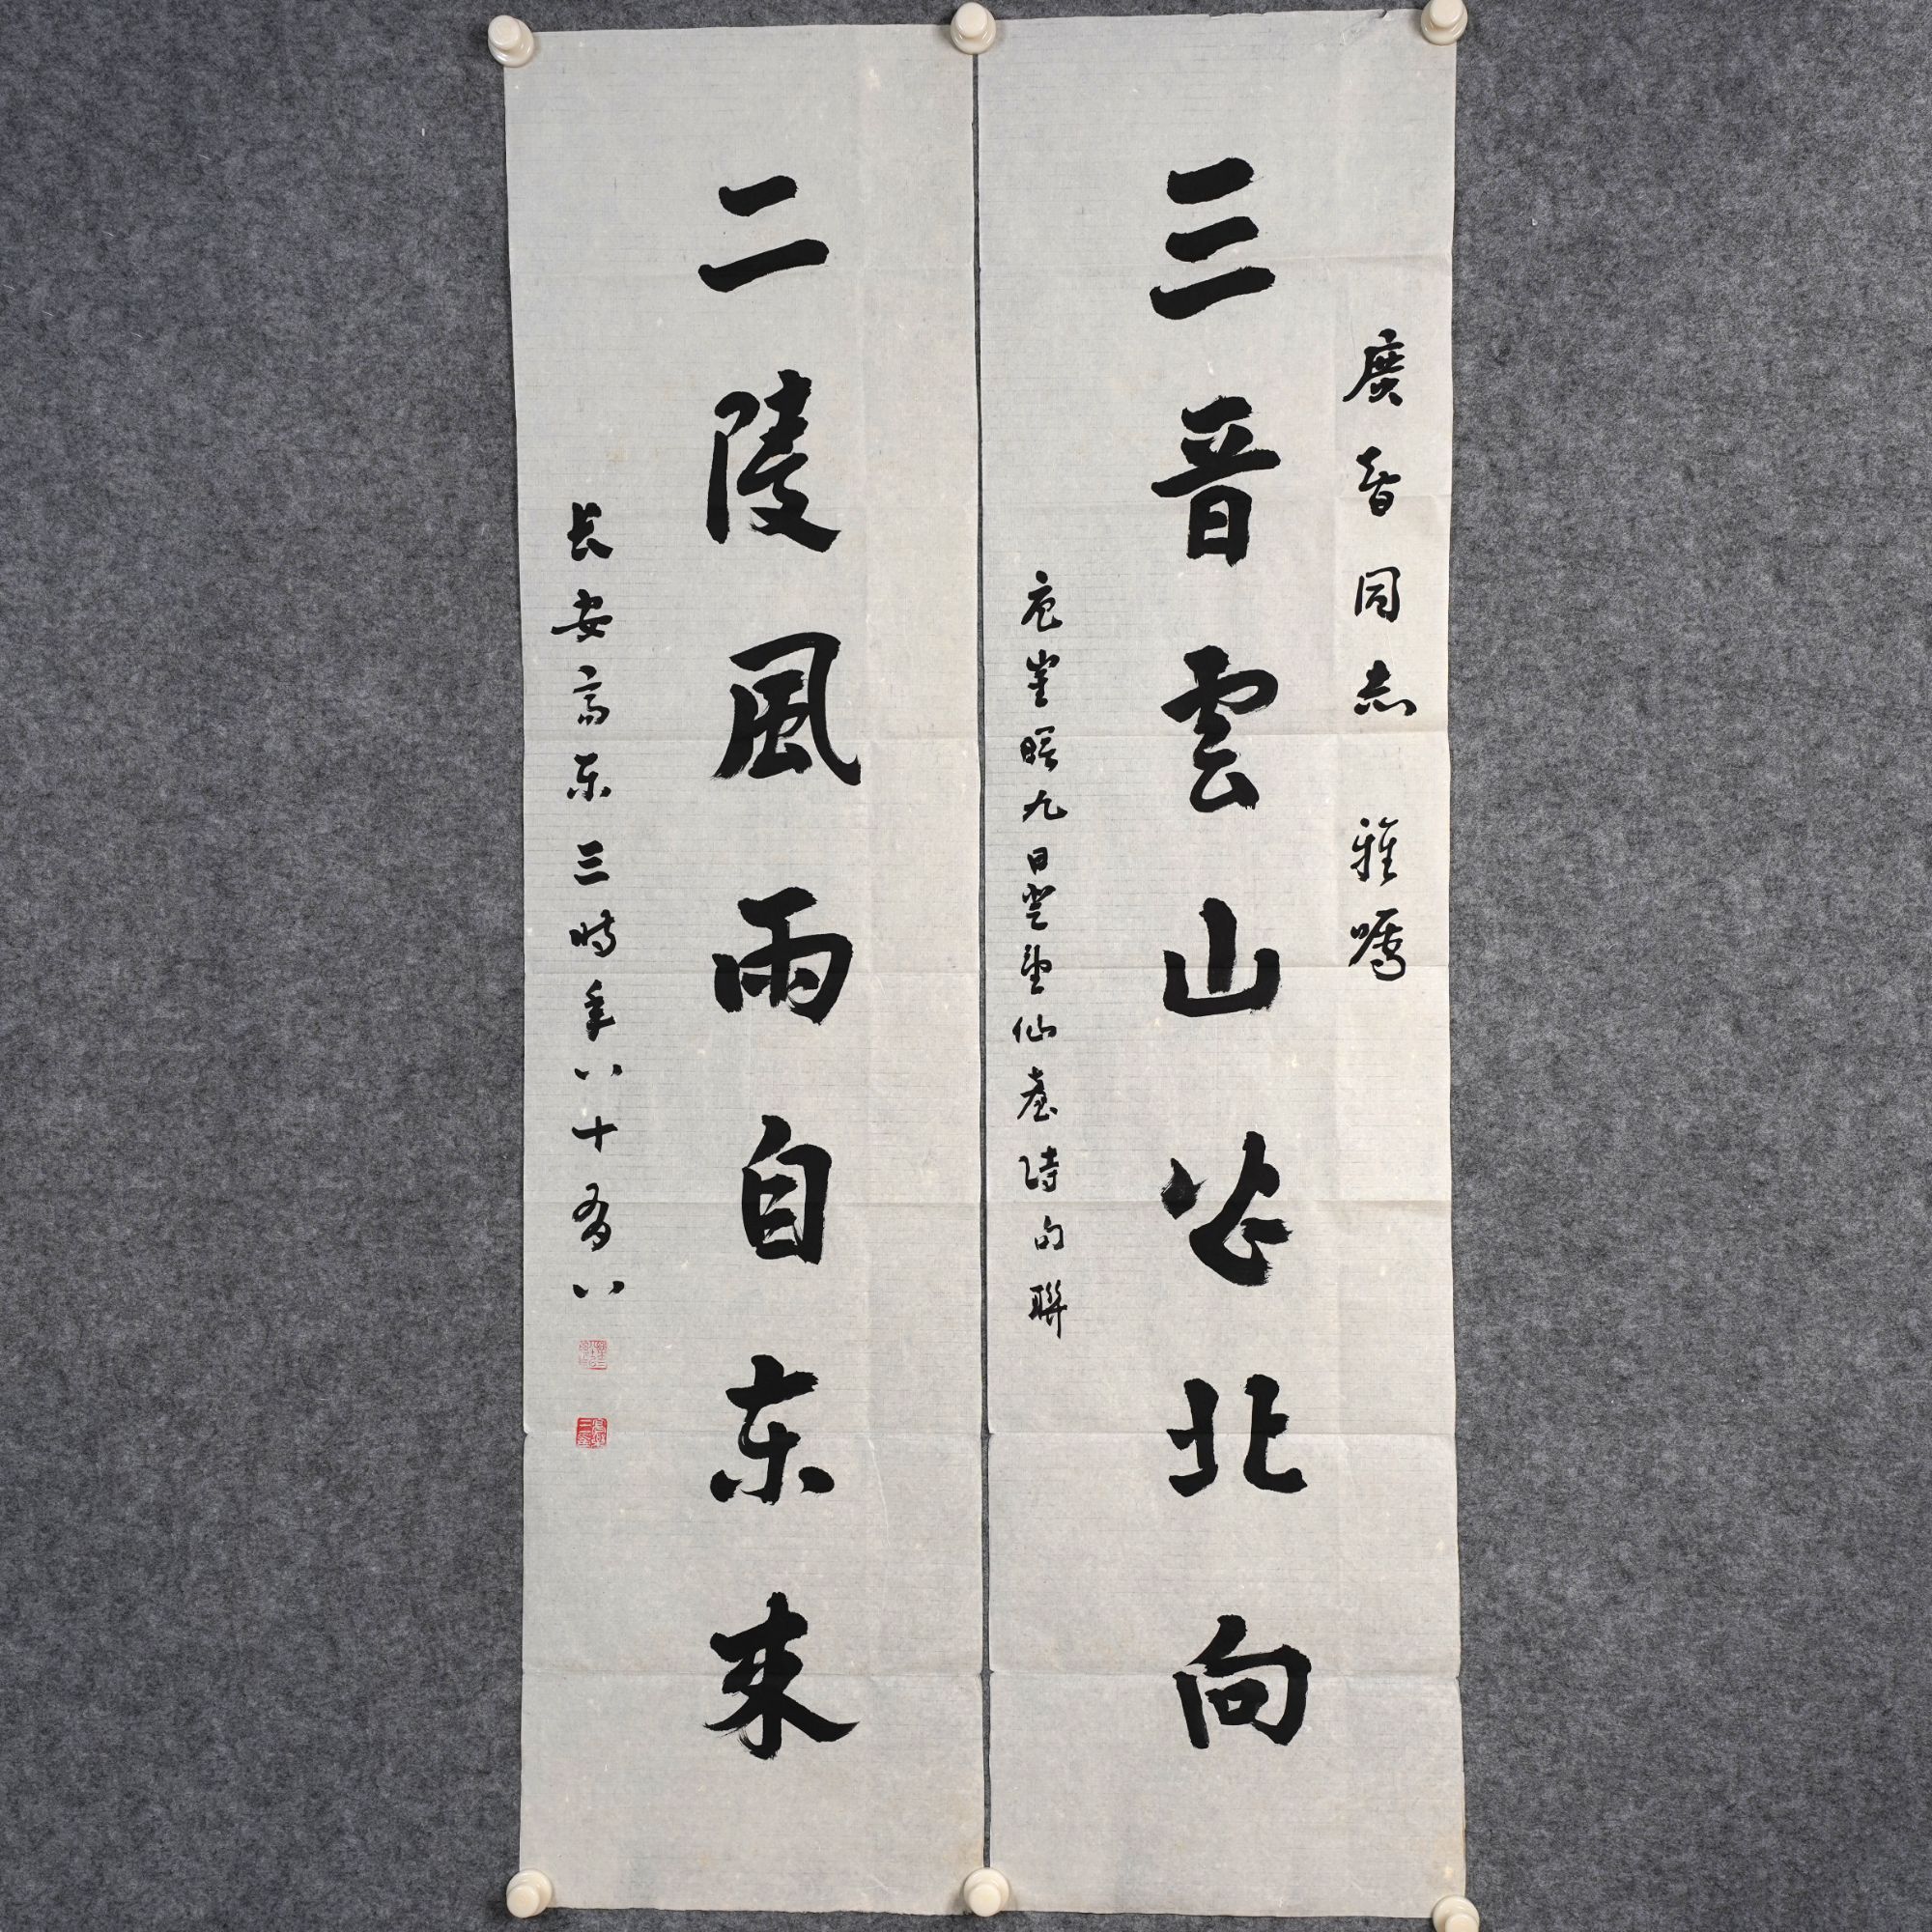 廣同志 雅嘱
三晋雲山皆北向
唐崔曙九日登望仙臺詩句聯
二陵風雨自东来
长安高乐三時年八十有八